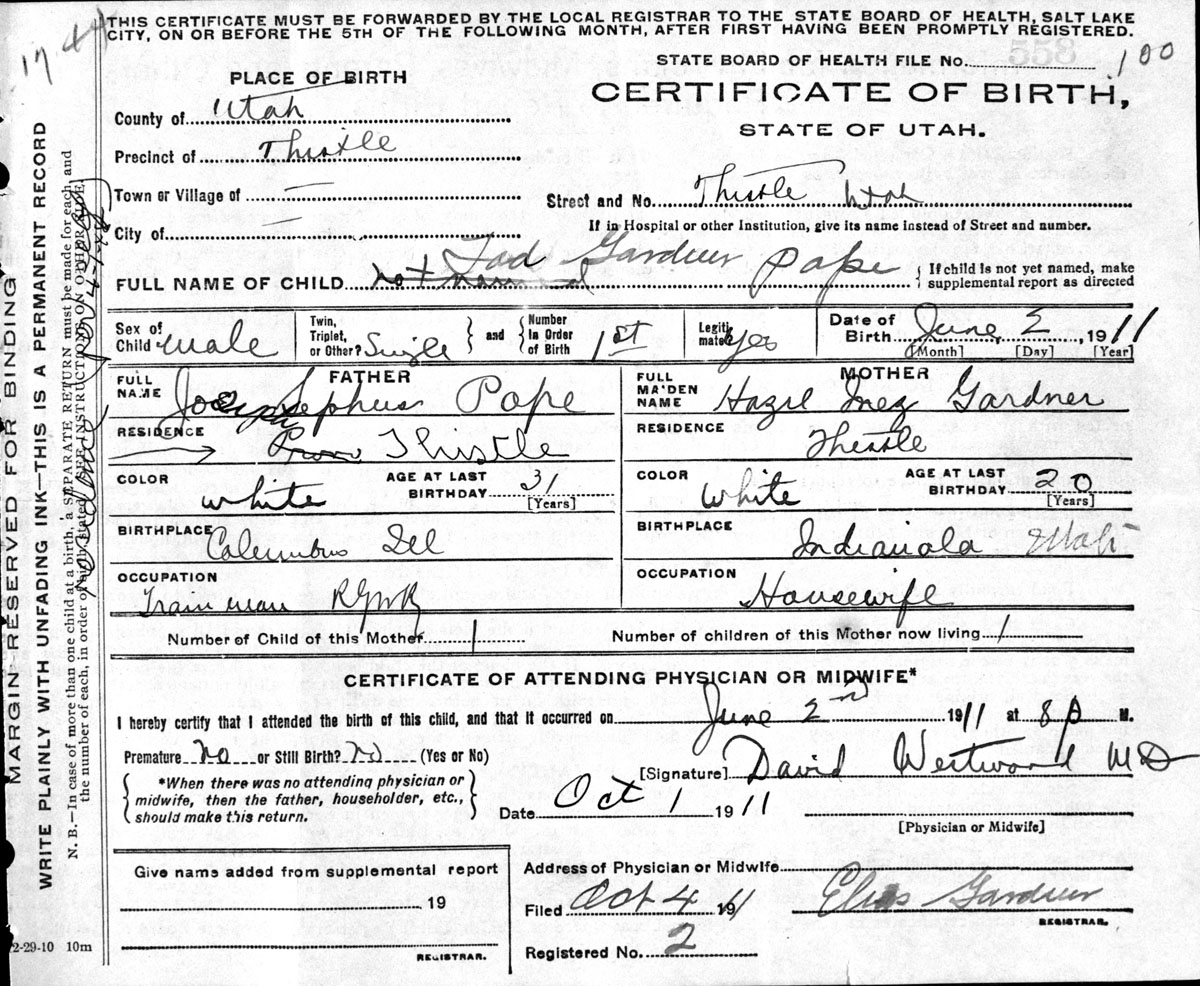 17-44
THIS CERTIFICATE MUST BE FORWARDED BY THE LOCAL REGISTRAR TO THE STATE BOARD OF HEALTH, SALT LAKE
CITY, ON OR BEFORE THE 5TH OF THE FOLLOWING MONTH, AFTER FIRST HAVING BEEN PROMPTLY REGISTERED.
558
STATE BOARD OF HEALTH FILE No. 100
PLACE OF BIRTH
CERTIFICATE OF BIRTH,
STATE OF UTAH.
County of Utah
Precinct of Thistle
Town or Village of —
Street and No. Thistle Utah
City of —
If in Hospital or other Institution, give its name instead of Street and number.
Tad Gardner
FULL NAME OF CHILD not named Pope { If child is not yet named, make
supplemental report as directed
Sex of Child Male
Twin, Triplet, or Other? Single } and { Number in Order of Birth 1st
Legitimate? Yes
Date of Birth June 2, 1911
[Month] [Day] [Year]
FATHER
FULL NAME Josephus Pope
RESIDENCE Thistle
COLOR White
AGE AT LAST BIRTHDAY 31 [Years]
BIRTHPLACE Columbus Ill
OCCUPATION Train man RGWR
MOTHER
FULL MAIDEN NAME Hazel Inez Gardner
RESIDENCE Thistle
COLOR White
AGE AT LAST BIRTHDAY 20 [Years]
BIRTHPLACE Indianola Utah
OCCUPATION Housewife
Number of Child of this Mother 1
Number of children of this Mother now living 1
CERTIFICATE OF ATTENDING PHYSICIAN OR MIDWIFE*
I hereby certify that I attended the birth of this child, and that it occurred on June 2nd 1911 at 8 P M.
Premature no or Still Birth? no (Yes or No)
[Signature] David Westwood MD
{ *When there was no attending physician or
midwife, then the father, householder, etc.,
should make this return. }
Date Oct 1 1911
[Physician or Midwife]
Give name added from supplemental report
19
REGISTRAR.
Address of Physician or Midwife
Filed Oct 4 1911 Elias Gardner
REGISTRAR.
Registered No. 2
2-29-10 10m
MARGIN RESERVED FOR BINDING
WRITE PLAINLY WITH UNFADING INK—THIS IS A PERMANENT RECORD
N. B.—In case of more than one child at a birth, a SEPARATE RETURN must be made for each, and
the number of each, in order of birth, stated. [SEE INSTRUCTIONS ON OTHER SIDE]